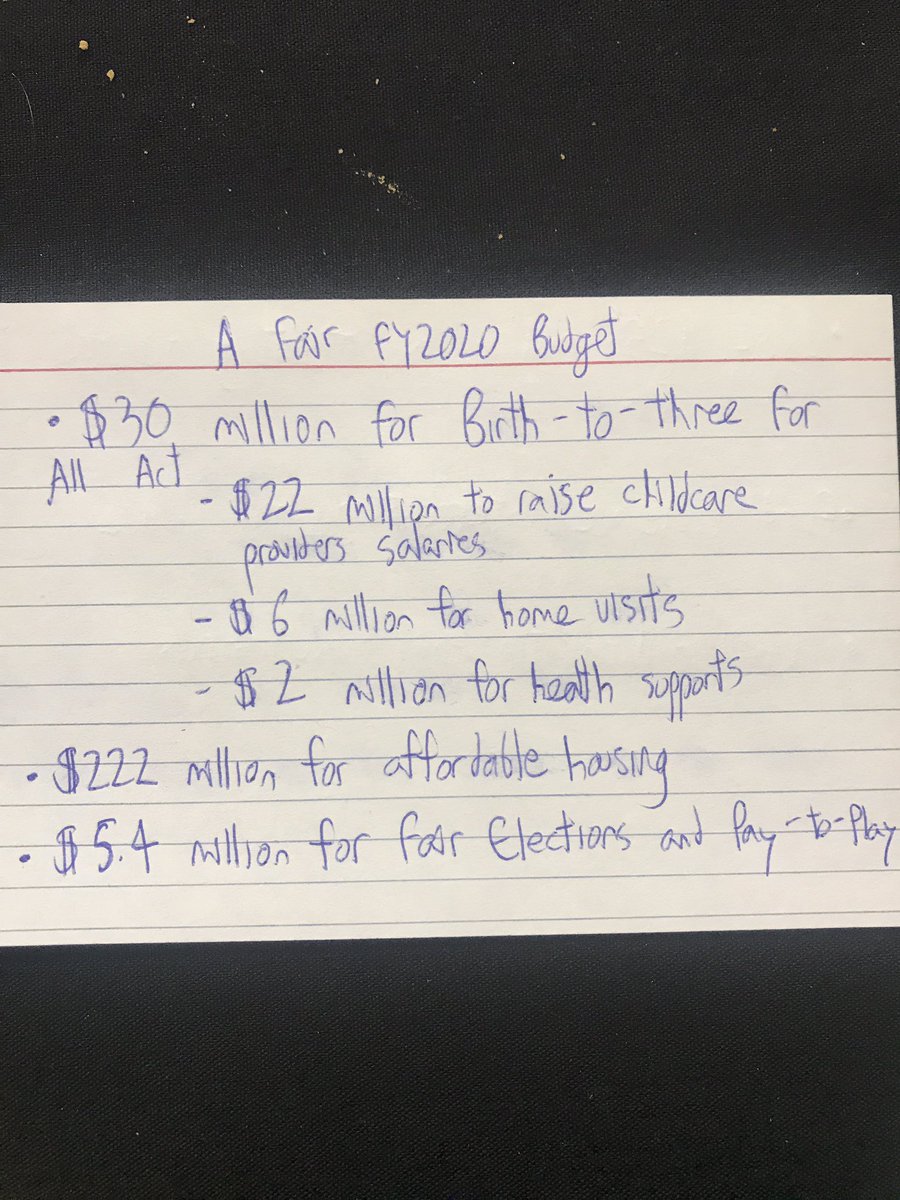 A Fair FY2020 Budget
• $30 million for Birth-to-three for
All Act
- $22 million to raise childcare
providers salaries
- $6 million for home visits
- $2 million for health supports
• $222 million for affordable housing
• $5.4 million for Fair Elections and Pay-to-Play